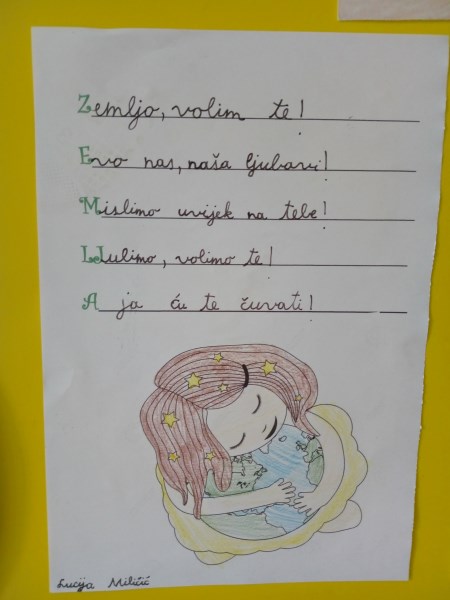 Zemljo, volim te!
Evo nas, naša ljubavi!
Mislimo uvijek na tebe!
LJulimo, volimo te!
A ja ću te čuvati!
Lucija Miličić